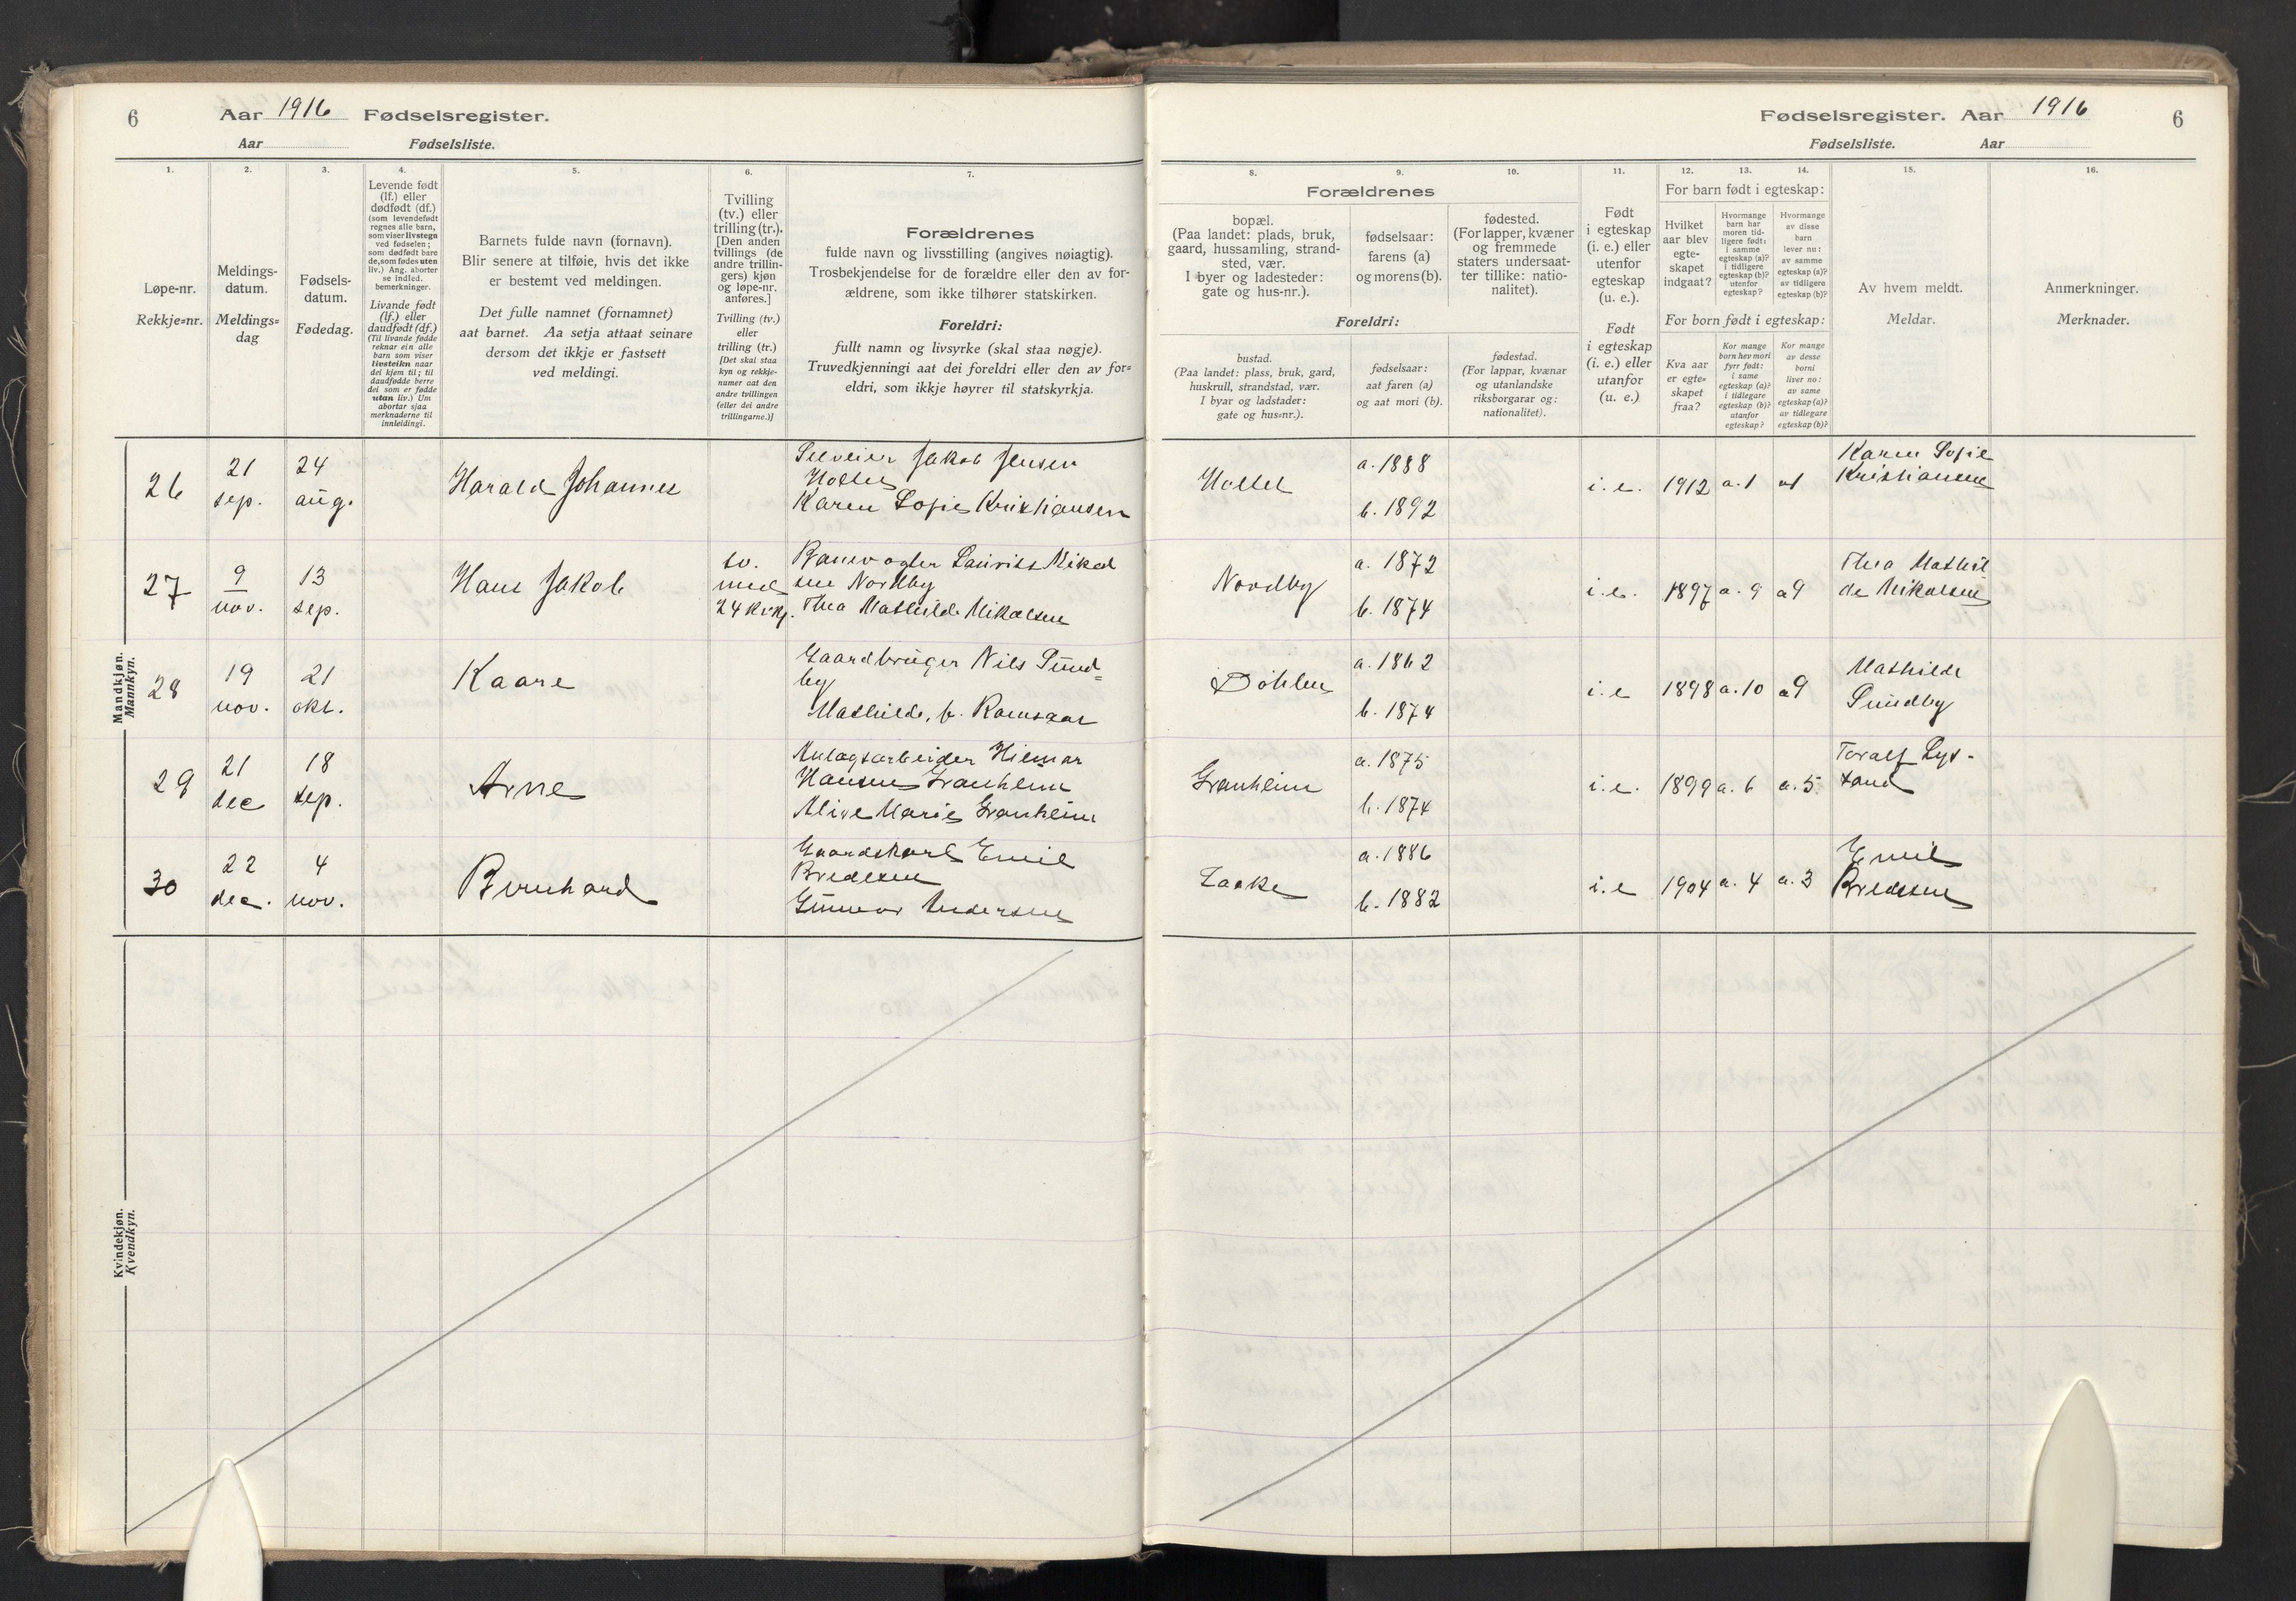 6
Aar 1916 Fødselsregister.
Aar Fødselsliste.
1.
2.
3.
4.
5.
6.
7.
Løpe-nr.
Rekkje=nr.
Meldings-
datum.
Meldings=
dag
Fødsels-
datum.
Fødedag.
Levende født
(lf.) eller
dødfødt (df.)
(som levendefødt
regnes alle barn,
som viser livstegn
ved fødselen;
som dødfødt bare
de, som fødes uten
liv.) Ang. aborter
se indled.
bemerkninger.
Livande født
(lf.) eller
daudfødt (df.)
(Til livande fødde
reknar ein alle
barn som viser
livsteikn naar
dei kjem til; til
daudfødde berre
dei som er fødde
utan liv.) Um
abortar sjaa
merknaderne til
innleidingi.
Barnets fulde navn (fornavn).
Blir senere at tilføie, hvis det ikke
er bestemt ved meldingen.
Det fulle namnet (fornamnet)
aat barnet. Aa setja attaat seinare
dersom det ikkje er fastsett
ved meldingi.
Tvilling
(tv.) eller
trilling (tr.).
[Den anden
tvillings (de
andre trillin-
gers) kjøn
og løpe-nr.
anføres.]
Tvilling (tv.)
eller
trilling (tr.)
[Det skal staa
kyn og rekkje-
numer aat den
andre tvillingen
(eller dei andre
trillingarne.)]
Forældrenes
fulde navn og livsstilling (angives nøiagtig).
Trosbekjendelse for de forældre eller den av for-
ældrene, som ikke tilhører statskirken.
Foreldri:
fullt namn og livsyrke (skal staa nøgje).
Truvedkjenningi aat dei foreldri eller den av for=
eldri, som ikkje høyrer til statskyrkja.
Mandkjøn.
Mannkyn.
26
21
sep.
24
aug.
Harald Johannes
Jakob Jensen
Holtet
Karen Sofie Kristiansen
27
9
nov.
13
sep.
Hans Jakob
tv.
med
24 kvkj.
Banevogter Laurits Mikal
sen Nordby
Thea Mathilde Mikalsen
28
19
nov.
21
okt.
Kaare
Gaardbruger Nils Sund=
by
Mathilde, f. Ramsaar
29
21
dec
18
sep.
Arne
Anlagsarbeider Hilmar
Hansen Granheim
Alise Marie Granheim
30
22
dec.
4
nov.
Bernhard
Gaardskarl Emil
Bredesen
Gunvor Andersen
Kvindekjøn.
Kvendkyn.
Fødselsregister. Aar 1916
6
Fødselsliste. Aar
8.
9.
10.
11.
12.
13.
14.
15.
16.
Forældrenes
bopæl.
(Paa landet: plads, bruk,
gaard, hussamling, strand-
sted, vær.
I byer og ladesteder:
gate og hus-nr.).
fødselsaar:
farens (a)
og morens (b).
fødested.
(For lapper, kvæner
og fremmede
staters undersaat-
ter tillike: natio-
nalitet).
Foreldri:
bustad.
(Paa landet: plass, bruk, gard,
huskrull, strandstad, vær.
I byar og ladstader:
gate og hus=nr.).
fødselsaar:
aat faren (a)
og aat mori (b).
fødestad.
(For lappar, kvænar
og utanlandske
riksborgarar og:
nationalitet).
Født
i egteskap
(i. e.) eller
utenfor
egteskap
(u. e.).
Født
i egteskap
(i. e.) eller
utanfor
(u. e.)
For barn født i egteskap:
Hvilket
aar blev
egte-
skapet
indgaat?
Hvormange
barn har
moren tid-
ligere født:
i samme
egteskap (a)?
i tidligere
egteskap (b)?
utenfor
egteskap?
Hvormange
av disse
barn
lever nu:
av samme
egteskap (a)?
av tidligere
egteskap (b)?
For born født i egteskap:
Kva aar
er egte=
skapet
fraa?
Kor mange
born hev mori
fyrr født:
i same
egteskap (a)?
i tidlegare
egteskap (b)?
utanfor
egteskap?
Kor mange
av desse
borni
liver no:
av same
egteskap (a)?
av tidlegare
egteskap (b)?
Av hvem meldt.
Meldar.
Anmerkninger.
Merknader.
Holtet
a. 1888
b. 1892
i. e. 1912 a. 1 a1
Karen Sofie
Kristiansen
Nordby
a. 1872
b. 1874
i. e. 1897 a. 9 a9
Thea Mathil
de Mikalsen
Døhlen
a. 1862
b. 1874
i. e 1898 a. 10 a9
Mathilde
Sundby
Granheim
a. 1875
b. 1874
i. e. 1899 a. 6 a. 5
Toralf Lys-
sand
Laake
a. 1886
b. 1882
i. e 1904 a. 4 a. 3
Emil
Bredesen